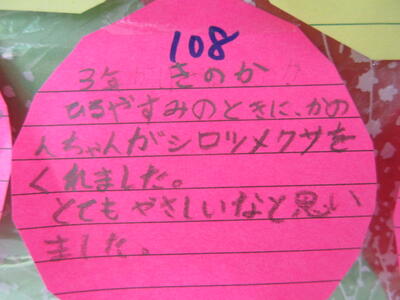 108
3年 きのか
ひるやすみのときに、かの
んちゃんがシロツメクサを
くれました。
とてもやさしいなと思い
ました。